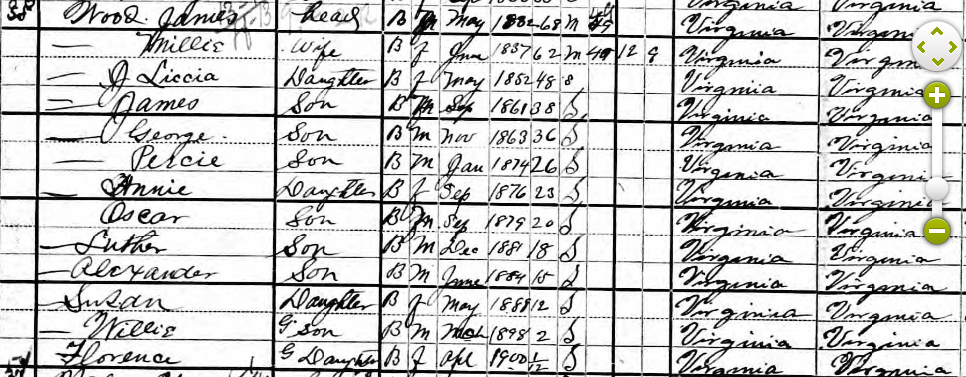 38 Wood James Head B M May 1832 68 M 49 Virginia Virginia
— Millie Wife B f June 1837 62 M 49 12 9 Virginia Virginia
— J Liccia Daughter B f May 1852 48 S Virginia Virginia
— James Son B M Sep 1861 38 S Virginia Virginia
— George Son B M Nov 1863 36 S Virginia Virginia
— Percie Son B M Jan 1874 26 S Virginia Virginia
— Annie Daughter B f Sep 1876 23 S Virginia Virginia
Oscar Son B M Sep 1879 20 S Virginia Virginia
— Luther Son B M Dec 1881 18 S Virginia Virginia
— Alexander Son B M June 1884 15 S Virginia Virginia
— Susan Daughter B f May 1888 12 S Virginia Virginia
— Willie G Son B M Mch 1898 2 S Virginia Virginia
— Florence G Daughter B f Apl 1900 1/12 S Virginia Virginia